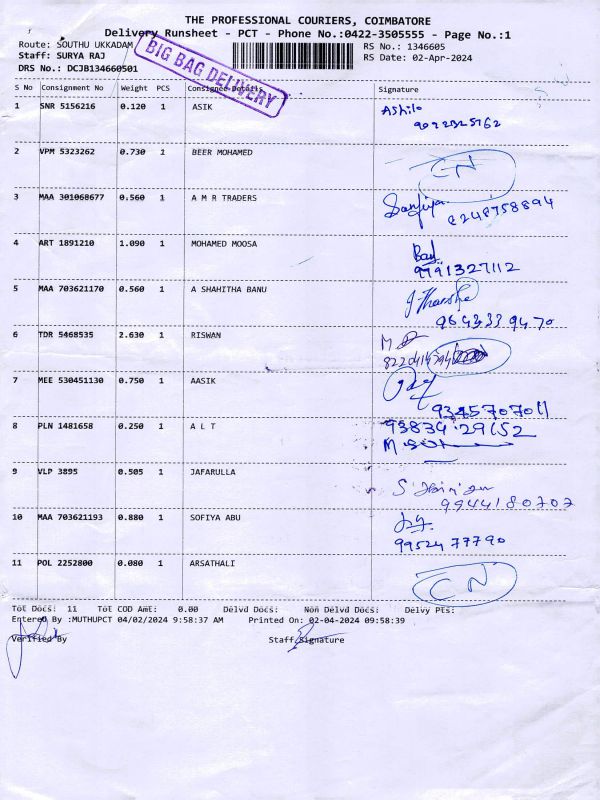 THE PROFESSIONAL COURIERS, COIMBATORE
Delivery Runsheet - PCT - Phone No.:0422-3505555 - Page No.:1
Route: SOUTHU UKKADAM
RS No.: 1346605
Staff: SURYA RAJ
RS Date: 02-Apr-2024
DRS No.: DCJB134660501
BIG BAG DELIVERY
S No Consignment No Weight PCS Consignee Details Signature
1 SNR 5156216 0.120 1 ASIK
2 VPM 5323262 0.730 1 BEER MOHAMED
CN
3 MAA 301068677 0.560 1 A M R TRADERS
8248758894
4 ART 1891210 1.090 1 MOHAMED MOOSA
9791327112
5 MAA 703621170 0.560 1 A SHAHITHA BANU
9643339470
6 TDR 5468535 2.630 1 RISWAN
7 MEE 530451130 0.750 1 AASIK
9345707011
8 PLN 1481658 0.250 1 A L T
93834 29152
9 VLP 3895 0.505 1 JAFARULLA
9944180707
10 MAA 703621193 0.880 1 SOFIYA ABU
99524 77790
11 POL 2252800 0.080 1 ARSATHALI
CN
Tot Docs: 11 Tot COD Amt: 0.00 Delvd Docs: Non Delvd Docs: Delvy Pts:
Entered By :MUTHUPCT 04/02/2024 9:58:37 AM Printed On: 02-04-2024 09:58:39
Verified By Staff Signature